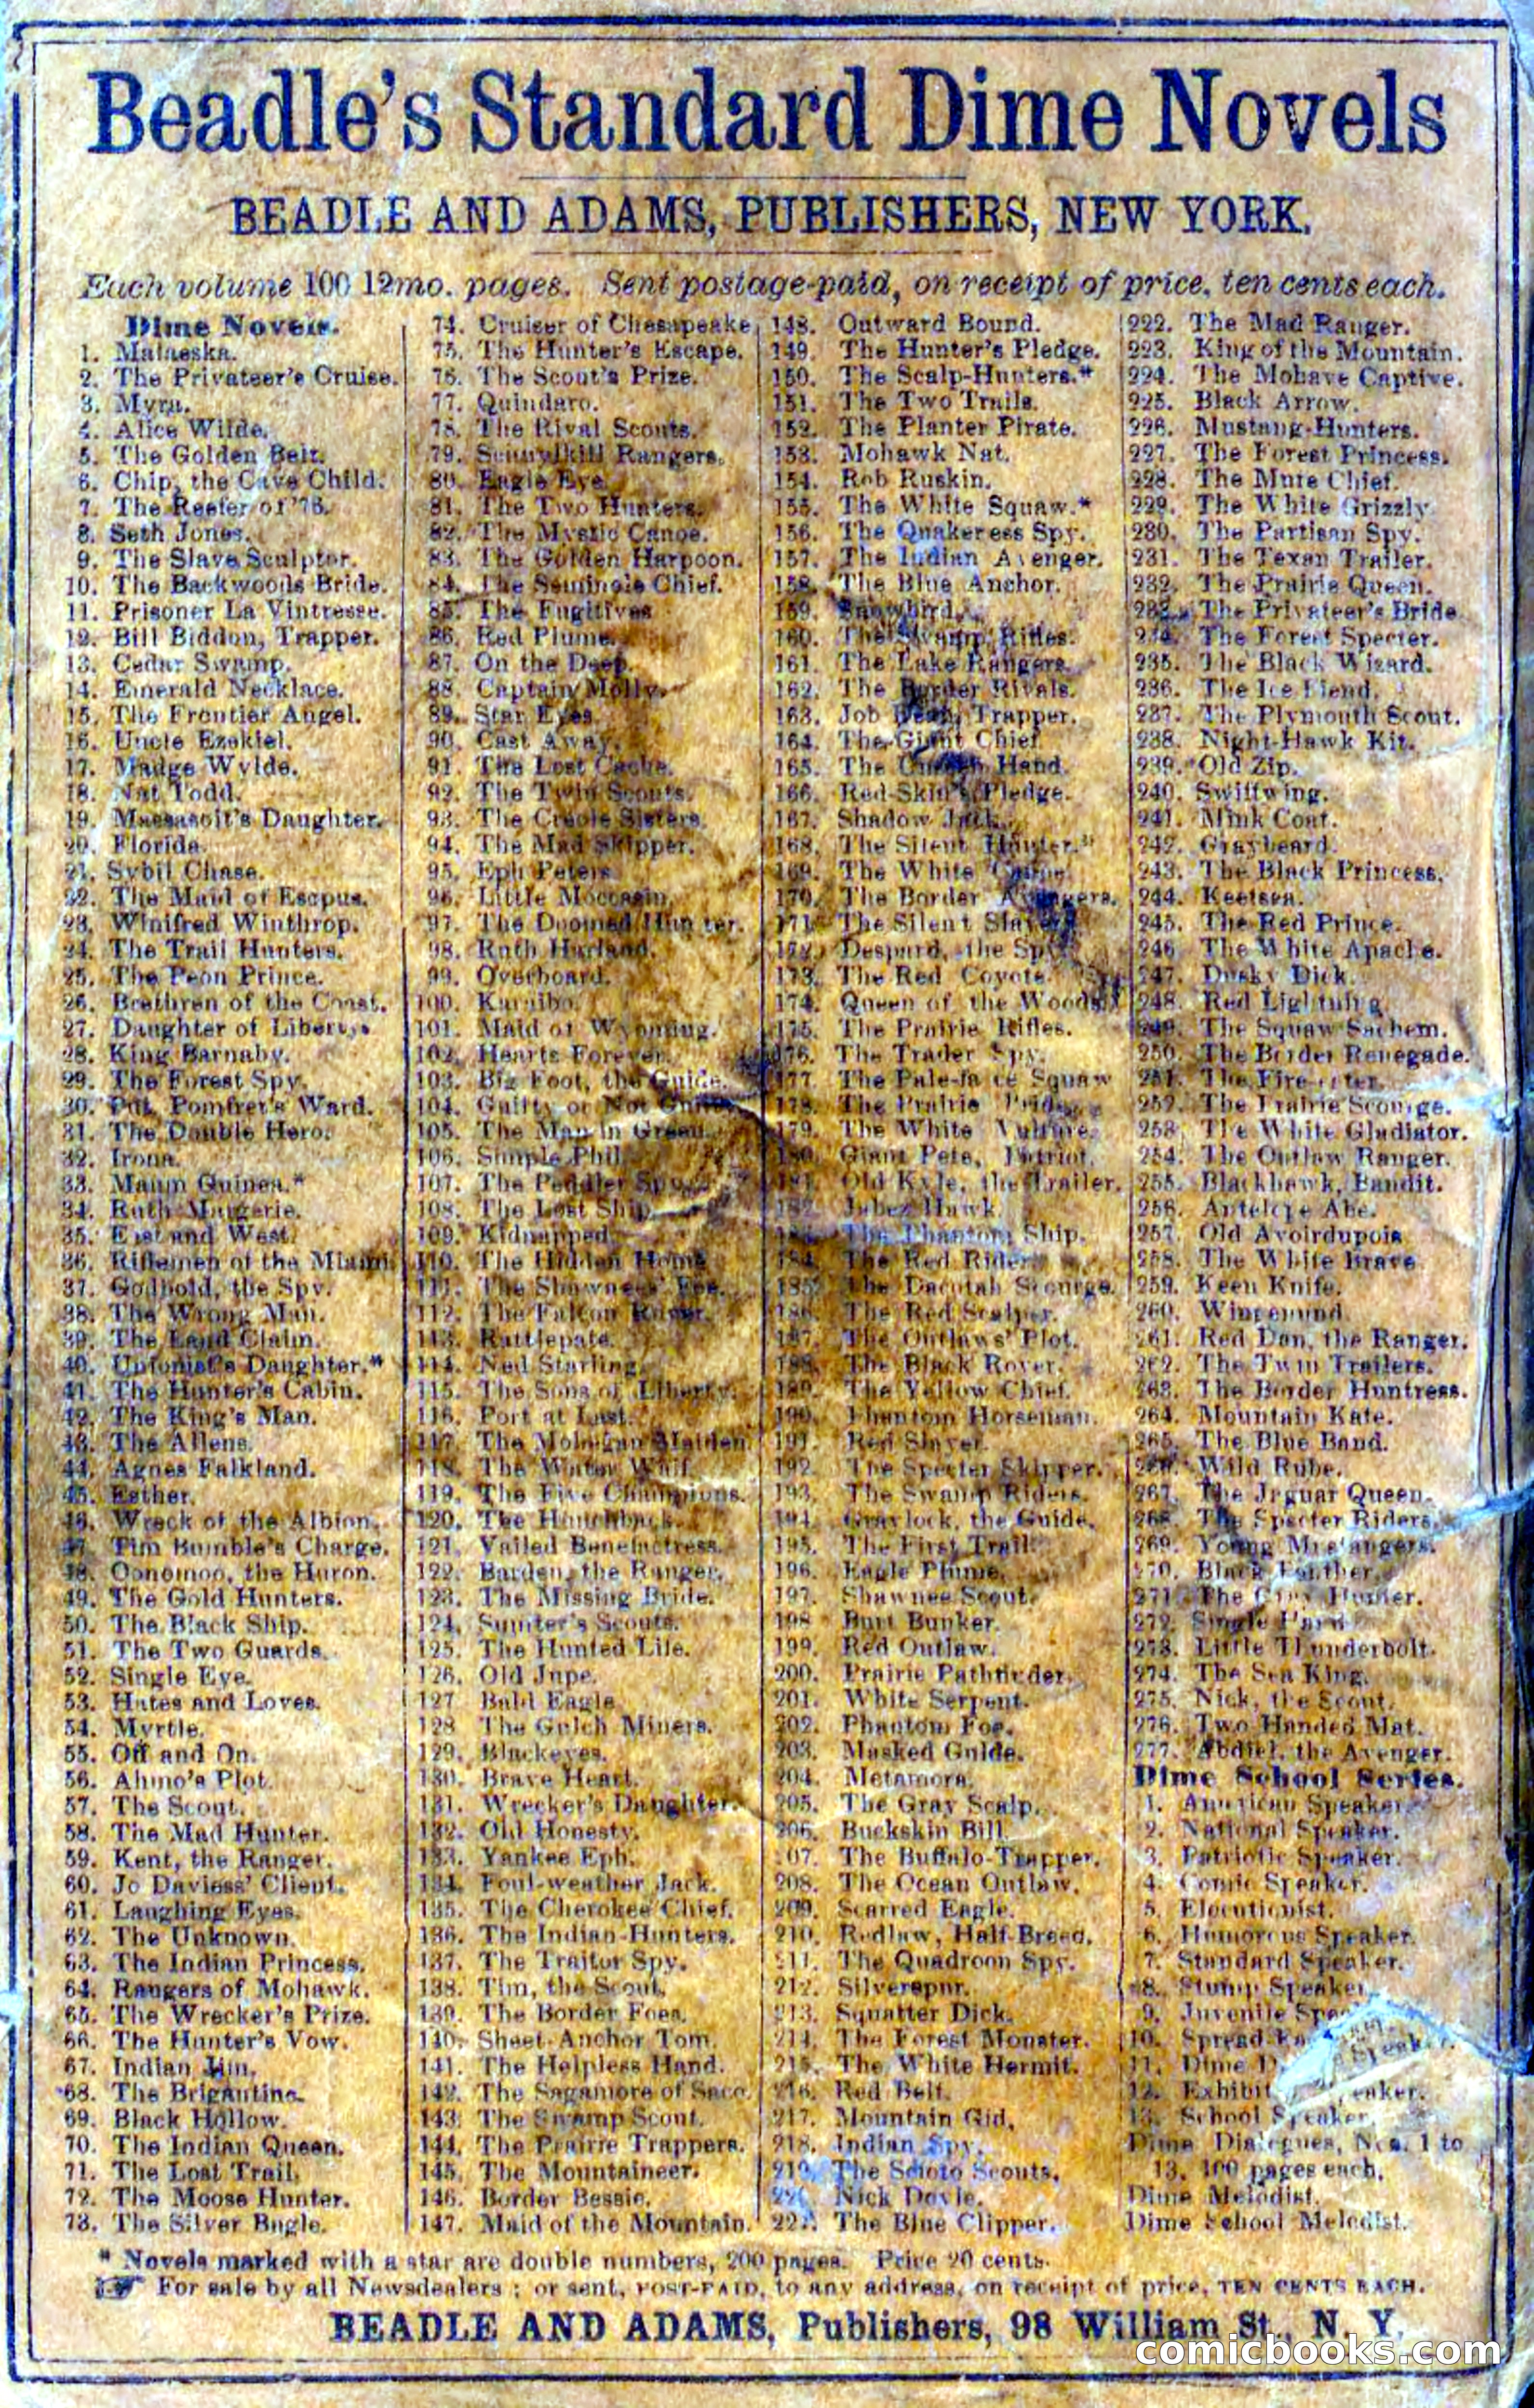 Beadle's Standard Dime Novels
BEADLE AND ADAMS, PUBLISHERS, NEW YORK.
Each volume 100 12mo. pages. Sent postage-paid, on receipt of price, ten cents each.
Dime Novels.
1. Malaeska.
2. The Privateer's Cruise.
3. Myra.
4. Alice Wilde.
5. The Golden Belt.
6. Chip, the Cave Child.
7. The Reefer of '76.
8. Seth Jones.
9. The Slave Sculptor.
10. The Backwoods Bride.
11. Prisoner La Vintresse.
12. Bill Biddon, Trapper.
13. Cedar Swamp.
14. Emerald Necklace.
15. The Frontier Angel.
16. Uncle Ezekiel.
17. Madge Wylde.
18. Nat Todd.
19. Massasoit's Daughter.
20. Florida.
21. Sybil Chase.
22. The Maid of Esopus.
23. Winifred Winthrop.
24. The Trail Hunters.
25. The Peon Prince.
26. Brethren of the Coast.
27. Daughter of Liberty.
28. King Barnaby.
29. The Forest Spy.
30. Put. Pomfret's Ward.
31. The Double Hero.
32. Irona.
33. Maum Guinea.*
34. Ruth Margerie.
35. East and West.
36. Riflemen of the Miami
37. Godbold, the Spy.
38. The Wrong Man.
39. The Land Claim.
40. Unionist's Daughter.*
41. The Hunter's Cabin.
42. The King's Man.
43. The Allens.
44. Agnes Falkland.
45. Esther.
46. Wreck of the Albion.
47. Tim Bumble's Charge.
48. Oonomoo, the Huron.
49. The Gold Hunters.
50. The Black Ship.
51. The Two Guards.
52. Single Eye.
53. Hates and Loves.
54. Myrtle.
55. Off and On.
56. Ahmo's Plot.
57. The Scout.
58. The Mad Hunter.
59. Kent, the Ranger.
60. Jo Daviess' Client.
61. Laughing Eyes.
62. The Unknown.
63. The Indian Princess.
64. Rangers of Mohawk.
65. The Wrecker's Prize.
66. The Hunter's Vow.
67. Indian Jim.
68. The Brigantine.
69. Black Hollow.
70. The Indian Queen.
71. The Lost Trail.
72. The Moose Hunter.
73. The Silver Bugle.
74. Cruiser of Chesapeake
75. The Hunter's Escape.
76. The Scout's Prize.
77. Quindaro.
78. The Rival Scouts.
79. Schuylkill Rangers.
80. Eagle Eye.
81. The Two Hunters.
82. The Mystic Canoe.
83. The Golden Harpoon.
84. The Seminole Chief.
85. The Fugitives
86. Red Plume.
87. On the Deep.
88. Captain Molly.
89. Star Eyes.
90. Cast Away.
91. The Lost Cache.
92. The Twin Scouts.
93. The Creole Sisters.
94. The Mad Skipper.
95. Eph Peters.
96. Little Moccasin.
97. The Doomed Hunter.
98. Ruth Harland.
99. Overboard.
100. Karaibo.
101. Maid of Wyoming.
102. Hearts Forever.
103. Big Foot, the Guide.
104. Guilty or Not Guilty
105. The Man in Green.
106. Simple Phil.
107. The Peddler Spy.
108. The Lost Ship.
109. Kidnapped.
110. The Hidden Home
111. The Shawnees' Foe.
112. The Falcon Rover.
113. Rattlepate.
114. Ned Starling.
115. The Sons of Liberty.
116. Port at Last.
117. The Mohegan Maiden.
118. The Water Waif.
119. The Five Champions.
120. The Hunchback.
121. Vailed Benefactress.
122. Barden, the Ranger.
123. The Missing Bride.
124. Sumter's Scouts.
125. The Hunted Life.
126. Old Jupe.
127 Bald Eagle
128 The Gulch Miners.
129. Blackeyes.
130. Brave Heart.
131. Wrecker's Daughter.
132. Old Honesty.
133. Yankee Eph.
134. Foul-weather Jack.
135. The Cherokee Chief.
136. The Indian-Hunters.
137. The Traitor Spy.
138. Tim, the Scout.
139. The Border Foes.
140. Sheet-Anchor Tom.
141. The Helpless Hand.
142. The Sagamore of Saco.
143. The Swamp Scout.
144. The Prairie Trappers.
145. The Mountaineer.
146. Border Bessie.
147. Maid of the Mountain.
148. Outward Bound.
149. The Hunter's Pledge.
150. The Scalp-Hunters.*
151. The Two Trails.
152. The Planter Pirate.
153. Mohawk Nat.
154. Rob Ruskin.
155. The White Squaw.*
156. The Quakeress Spy.
157. The Indian Avenger.
158. The Blue Anchor.
159. Snowbird.
160. The Swamp Rifles.
161. The Lake Rangers.
162. The Border Rivals.
163. Job Trapper.
164. The Giant Chief.
165. The Hand.
166. Red-Skin's Pledge.
167. Shadow Jack.
168. The Silent Hunter.*
169. The White Canoe.
170. The Border Avengers.
171. The Silent Slayer
172. Despard, the Spy
173. The Red Coyote.
174. Queen of the Woods.
175. The Prairie Rifles.
176. The Trader Spy.
177. The Pale-face Squaw
178. The Prairie Bride.
179. The White Vulture.
180. Giant Pete, Patriot.
181. Old Kyle, the Trailer.
182. Jabez Hawk.
183. The Phantom Ship.
184. The Red Rider.
185. The Dacotah Scourge.
186. The Red Scalper.
187. The Outlaws' Plot.
188. The Black Rover.
189. The Yellow Chief.
190. Phantom Horseman.
191. Red Slayer.
192. The Specter Skipper.
193. The Swamp Riders.
194. Graylock, the Guide.
195. The First Trail.
196. Eagle Plume.
197. Shawnee Scout.
198 Burt Bunker.
199. Red Outlaw.
200. Prairie Pathfinder.
201. White Serpent.
202. Phantom Foe.
203. Masked Guide.
204. Metamora.
205. The Gray Scalp.
206. Buckskin Bill.
07. The Buffalo-Trapper.
208. The Ocean Outlaw.
209. Scarred Eagle.
210. Redlaw, Half-Breed.
211. The Quadroon Spy.
212. Silverspur.
213. Squatter Dick.
214. The Forest Monster.
215. The White Hermit.
216. Red Belt.
217. Mountain Gid,
218. Indian Spy.
219. The Scioto Scouts.
22 Nick Doyle.
22 The Blue Clipper.
222. The Mad Ranger.
223. King of the Mountain.
224. The Mohave Captive.
225. Black Arrow.
226. Mustang-Hunters.
227. The Forest Princess.
228. The Mute Chief.
229. The White Grizzly
230. The Partisan Spy.
231. The Texan Trailer.
232. The Prairie Queen.
233. The Privateer's Bride
234. The Forest Specter.
235. The Black Wizard.
236. The Ice Fiend.
237. The Plymouth Scout.
238. Night-Hawk Kit.
239. Old Zip.
240. Swiftwing.
241. Mink Coat.
242. Graybeard.
243. The Black Princess.
244. Keetsea.
245. The Red Prince.
246 The White Apache.
247. Dusky Dick.
248. Red Lightning
249. The Squaw Sachem.
250. The Border Renegade.
251. The Fire-eater.
252. The Prairie Scourge.
253. The White Gladiator.
254. The Outlaw Ranger.
255. Blackhawk, Bandit.
256. Antelope Abe.
257. Old Avoirdupois
258. The White Brave
259. Keen Knife.
260. Wingenund.
261. Red Dan, the Ranger.
262. The Twin Trailers.
263. The Border Huntress.
264. Mountain Kate.
265. The Blue Band.
266. Wild Rube.
267. The Jaguar Queen.
268. The Specter Riders.
269. Young Mustangers.
270. Black Panther.
271 The Grey Hunter.
272. Single Hand
273. Little Thunderbolt.
274. The Sea King.
275. Nick, the Scout.
276. Two Handed Mat.
277. Abdiel, the Avenger.
Dime School Series.
1. American Speaker.
2. National Speaker.
3. Patriotic Speaker.
4. Comic Speaker.
5. Elocutionist.
6. Humorous Speaker.
7. Standard Speaker.
8. Stump Speaker.
9. Juvenile Spea
10. Spread-Ea Speaker.
11. Dime D
12. Exhibit eaker.
13. School Speaker.
Dime Dialogues, Nos. 1 to
13. 100 pages each.
Dime Melodist.
Dime School Melodist.
* Novels marked with a star are double numbers, 200 pages. Price 20 cents.
☞ For sale by all Newsdealers; or sent, POST-PAID, to any address, on receipt of price, TEN CENTS EACH.
BEADLE AND ADAMS, Publishers, 98 William St., N. Y.
comicbooks.com